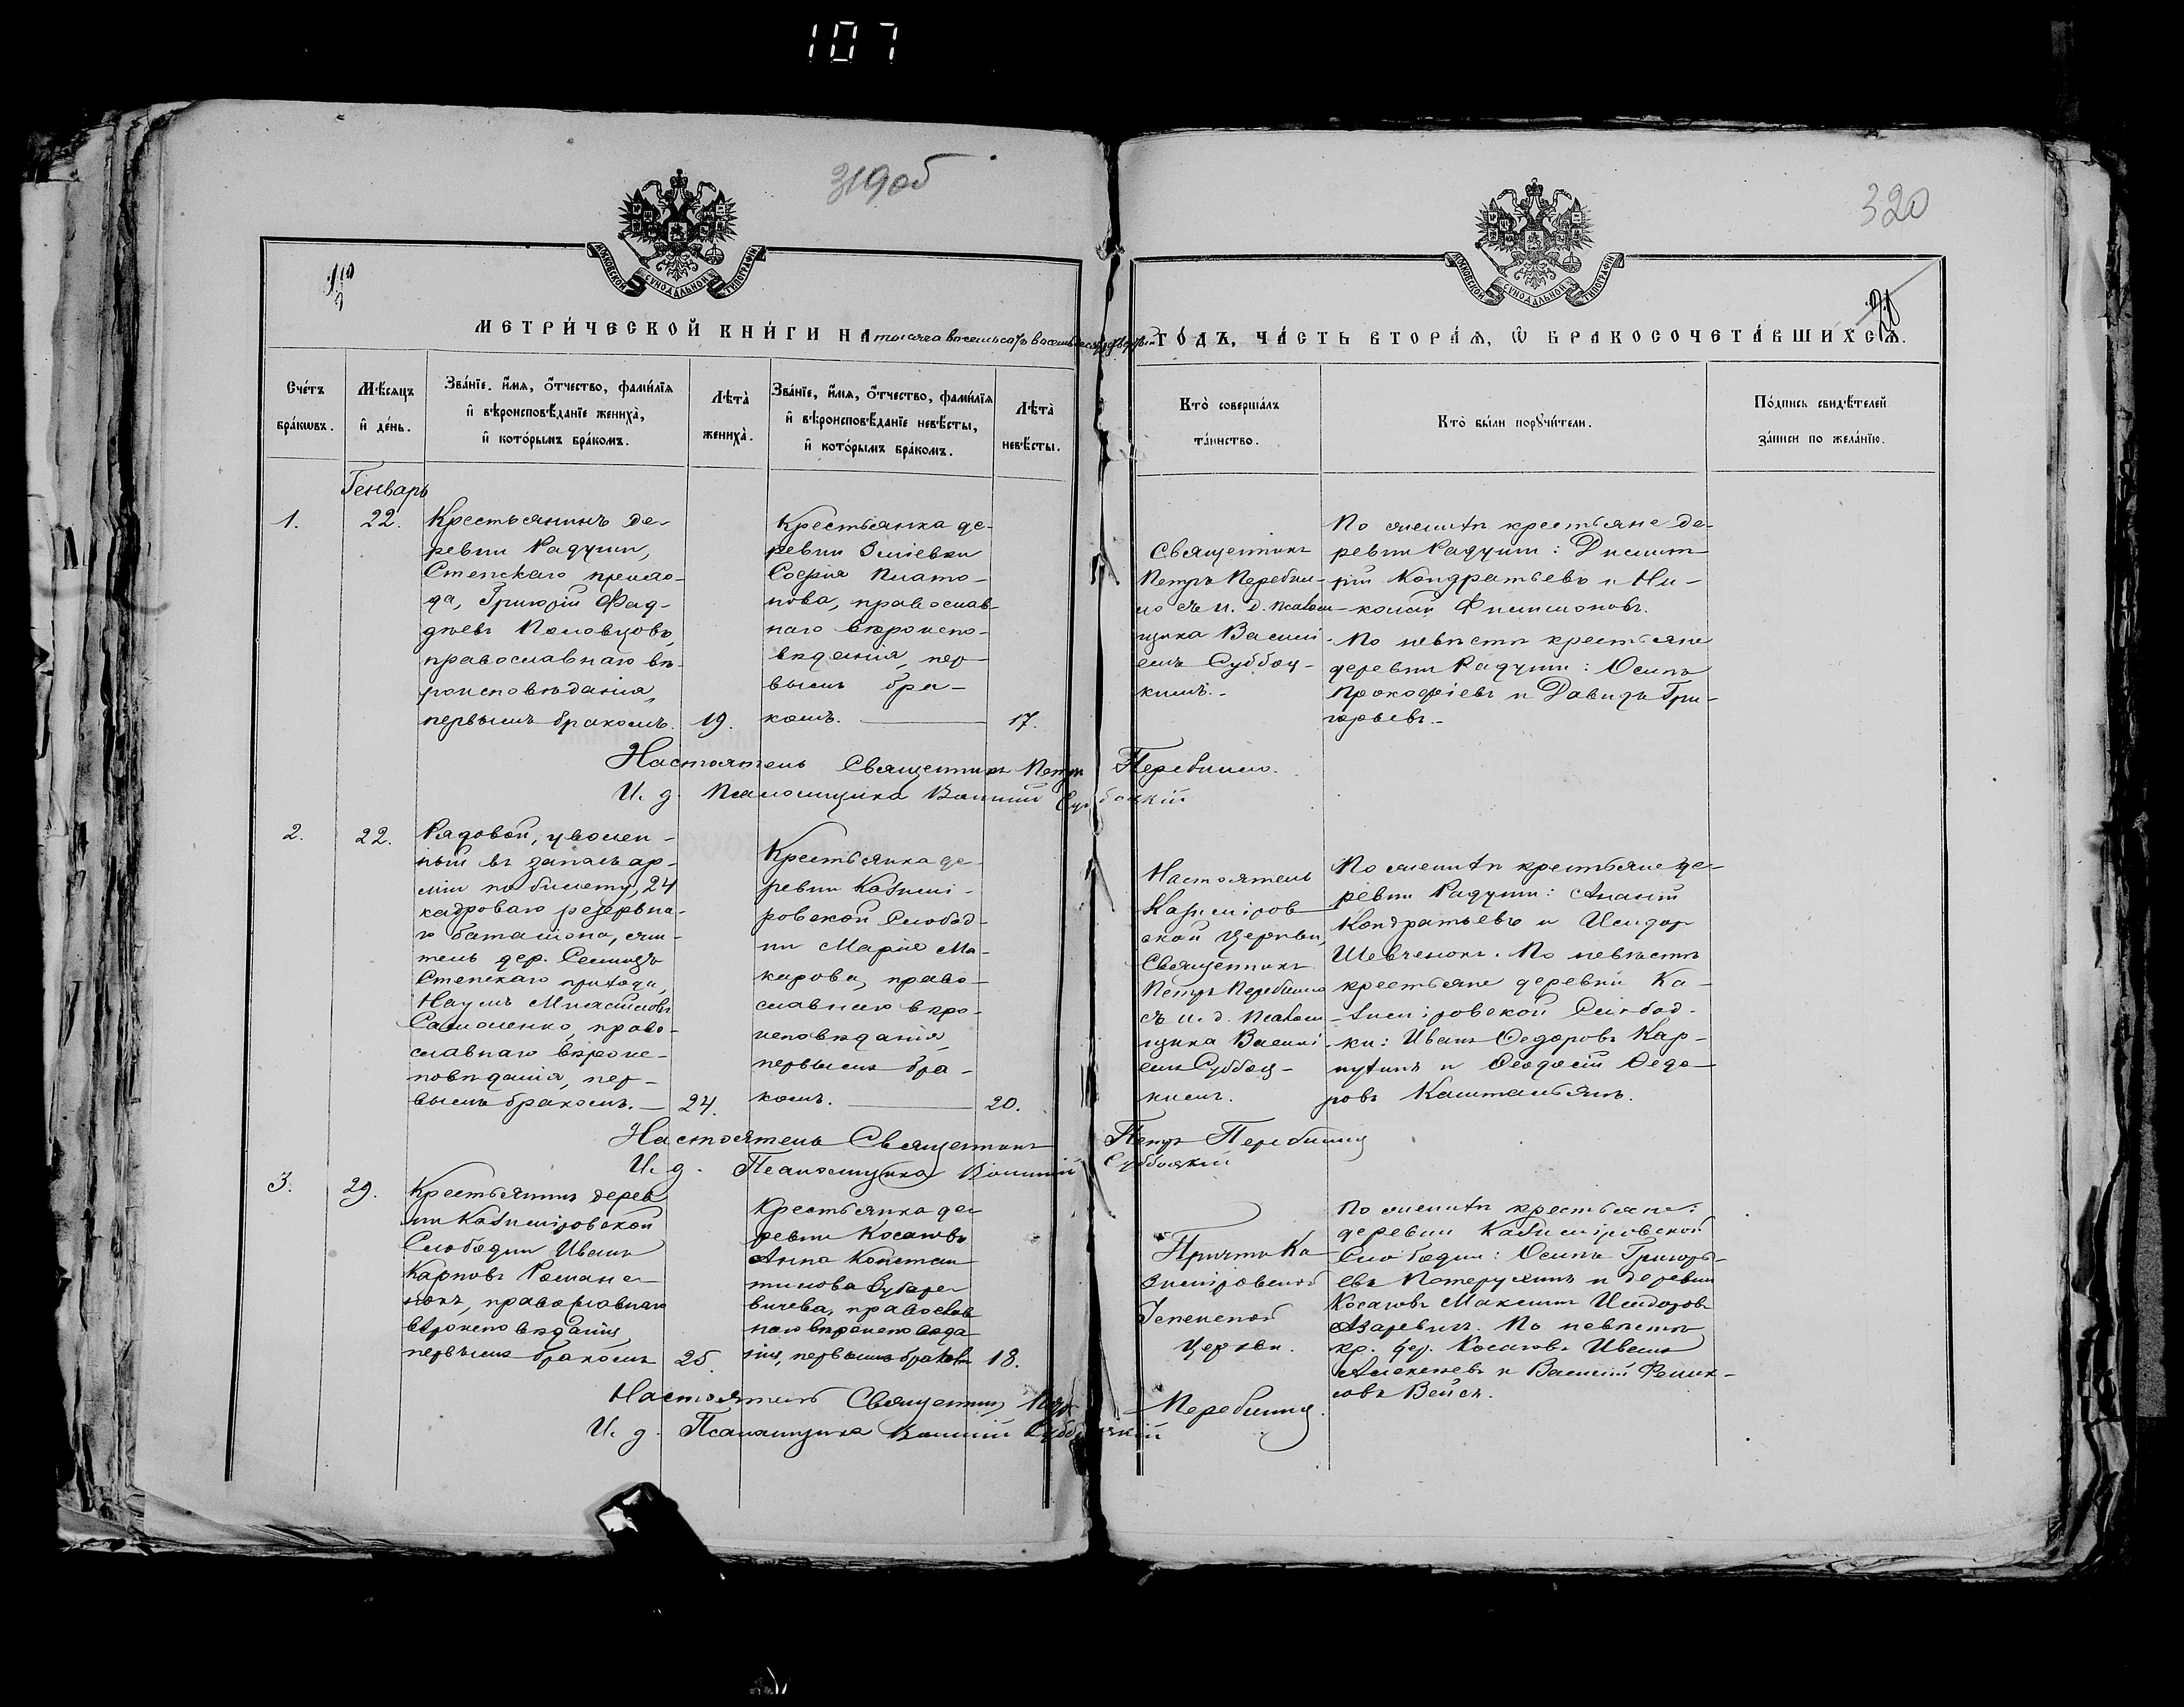 107
319об
320
МОСКОВСКОЙ СѴНОДАЛЬНОЙ ТИПОГРАФІИ
МОСКОВСКОЙ СѴНОДАЛЬНОЙ ТИПОГРАФІИ
МЕТРИ́ЧЕСКОЙ КНИ́ГИ НА тысяча восемьсотъ восемьдесятъ ГО́ДЪ, ЧА́СТЬ ВТОРА́Ѧ, Ѽ БРАКОСОЧЕТА́ВШИХСѦ.
Сче́тъ
бра́кѡвъ.
Мѣ́сяцъ
и҆ де́нь.
Зва́нїе, и҆́мя, ѻ҆́тчество, фами́лїя
и҆ вѣроисповѣ́данїе жениха̀,
и҆ кото́рымъ бра́комъ.
Лѣта̀
жениха̀.
Зва́нїе, и҆́мя, ѻ҆́тчество, фами́лїя
и҆ вѣроисповѣ́данїе невѣ́сты,
и҆ кото́рымъ бра́комъ.
Лѣта̀
невѣ́сты.
Кто̀ соверша́лъ
та́инство.
Кто̀ бы́ли порꙋчи́тели.
По́дпись свидѣ́телей
за́писи по жела́нїю.
Генварь
1.
22.
Крестьянинъ де-
ревни Радути,
Степскаго прихо-
да, Григорій Фад-
дѣевъ Половцовъ,
православнаго вѣ-
роисповѣданія,
первымъ бракомъ.
19.
Крестьянка де-
ревни Зміевки
Софія Плато-
нова, православ-
наго вѣроиспо-
вѣданія, пер-
вымъ бра-
комъ.
17.
Священникъ
Петръ Перебил-
ло съ и. д. Псалом-
щика Василі-
емъ Суббоц-
кимъ.-
По женихѣ крестьяне де-
ревни Радути: Димит-
рій Кондратьевъ и Ни-
колай Филимоновъ.
По невѣстѣ крестьяне
деревни Радути: Осипъ
Прокофіевъ и Давидъ Гри-
горьевъ.-
Настоятель Священникъ Петръ Перебилло.
И. д. Псаломщика Василій Суббоцкій
2.
22.
Рядовой, уволен-
ный въ запасъ ар-
міи по билету, 24
кадроваго резервна-
го баталіона, жи-
тель дер.
Степскаго прихода,
Наумъ
Самоленко, право-
славнаго вѣроис-
повѣданія, пер-
вымъ бракомъ.
24.
Крестьянка де-
ревни Казими-
ровской Слобод-
ки Марія Ма-
карова, право-
славнаго вѣро-
исповѣданія,
первымъ бра-
комъ.
20.
Настоятель
Казиміров-
ской Церкви,
Священникъ
Петръ Перебилло
съ и. д. Псалом-
щика Василі-
емъ Суббоц-
кимъ.
По женихѣ крестьяне де-
ревни Радути: Ананій
Кондратьевъ и Исидор
Шевченокъ. По невѣстѣ
крестьяне деревни Ка-
зиміровской Слобод-
ки: Иванъ Ѳедоровъ Кар-
пухинъ и Ѳеодосій Ѳедо-
ровъ Каштальянъ.
Настоятель Священникъ Петръ Перебилло
И. д. Псаломщика Василій Суббоцкій
3.
29.
Крестьянинъ дерев
ни Казиміровской
Слободки Иванъ
Карповъ Романе-
нокъ, православнаго
вѣроисповѣданія,
первымъ бракомъ
25.
Крестьянка де-
ревни Косачовъ
Анна Констан
тинова
православ
наго вѣроисповѣда
нія, первымъ бракомъ
18.
Причтъ Ка
зиміровской
Успенской
Церкви.
По женихѣ крестьяне:
деревни Казиміровской
Слободки: Осипъ Григорь-
евъ и деревни
Косачовъ Максимъ Исидоровъ
Азаревичъ. По невѣстѣ
кр. дер. Косачовъ Иванъ
Алексѣевъ и Василій
Настоятель Священникъ Петръ Перебилло.
И. д. Псаломщика Василій Суббоцкій